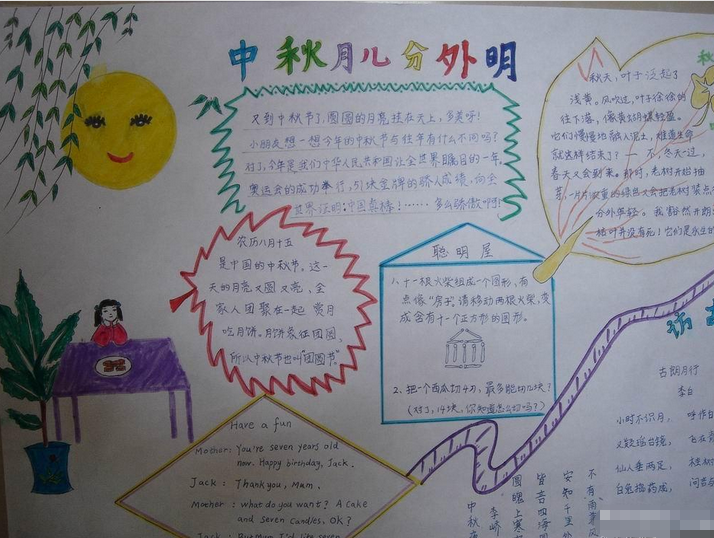 中秋月儿分外明
又到中秋节了,圆圆的月亮挂在天上,多美呀!
小朋友想一想今年的中秋节与往年有什么不同吗?
对了,今年是我们中华人民共和国让全世界瞩目的一年,
奥运会的成功举行,51块金牌的骄人成绩,向全
世界证明:中国真棒!……多么骄傲啊!
秋天,叶子泛起了
浅黄。风吹过,叶子徐徐的
往下落,像黄蝴蝶轻盈。
它们慢慢地融入泥土,难道生命
就这样结束了?——不,冬天过,
春天又会到来。那时,老树开始抽
芽,一片片浓重的绿色又会把老树装点
分外年轻。我豁然开朗
枯叶并没有死!它们是永生的
农历八月十五
是中国的中秋节,这一
天的月亮又圆又亮,全
家人团聚在一起赏月
吃月饼。月饼象征团圆,
所以中秋节也叫"团圆节"。
聪明屋
1.十一根火柴组成一个图形,有
点像"房子",请移动两根火柴,变
成含有十一个正方形的图形。
2.把一个西瓜切4刀,最多能切几块?
(对了,14块,你知道怎么切吗?)
Have a fun
Mother: You're seven years old
now. Happy birthday, Jack.
Jack: Thank you, Mum.
Mother: what do you want? A cake
and seven candles, OK?
Jack: But Mum, I'd like seven
古朗月行
李白
小时不识月,呼作白
又疑瑶台镜,飞在青
仙人垂两足,桂树
白兔捣药成,问言
不有雨兼风
安知千里外
皆言四海同
圆魄上寒
李峤
中秋